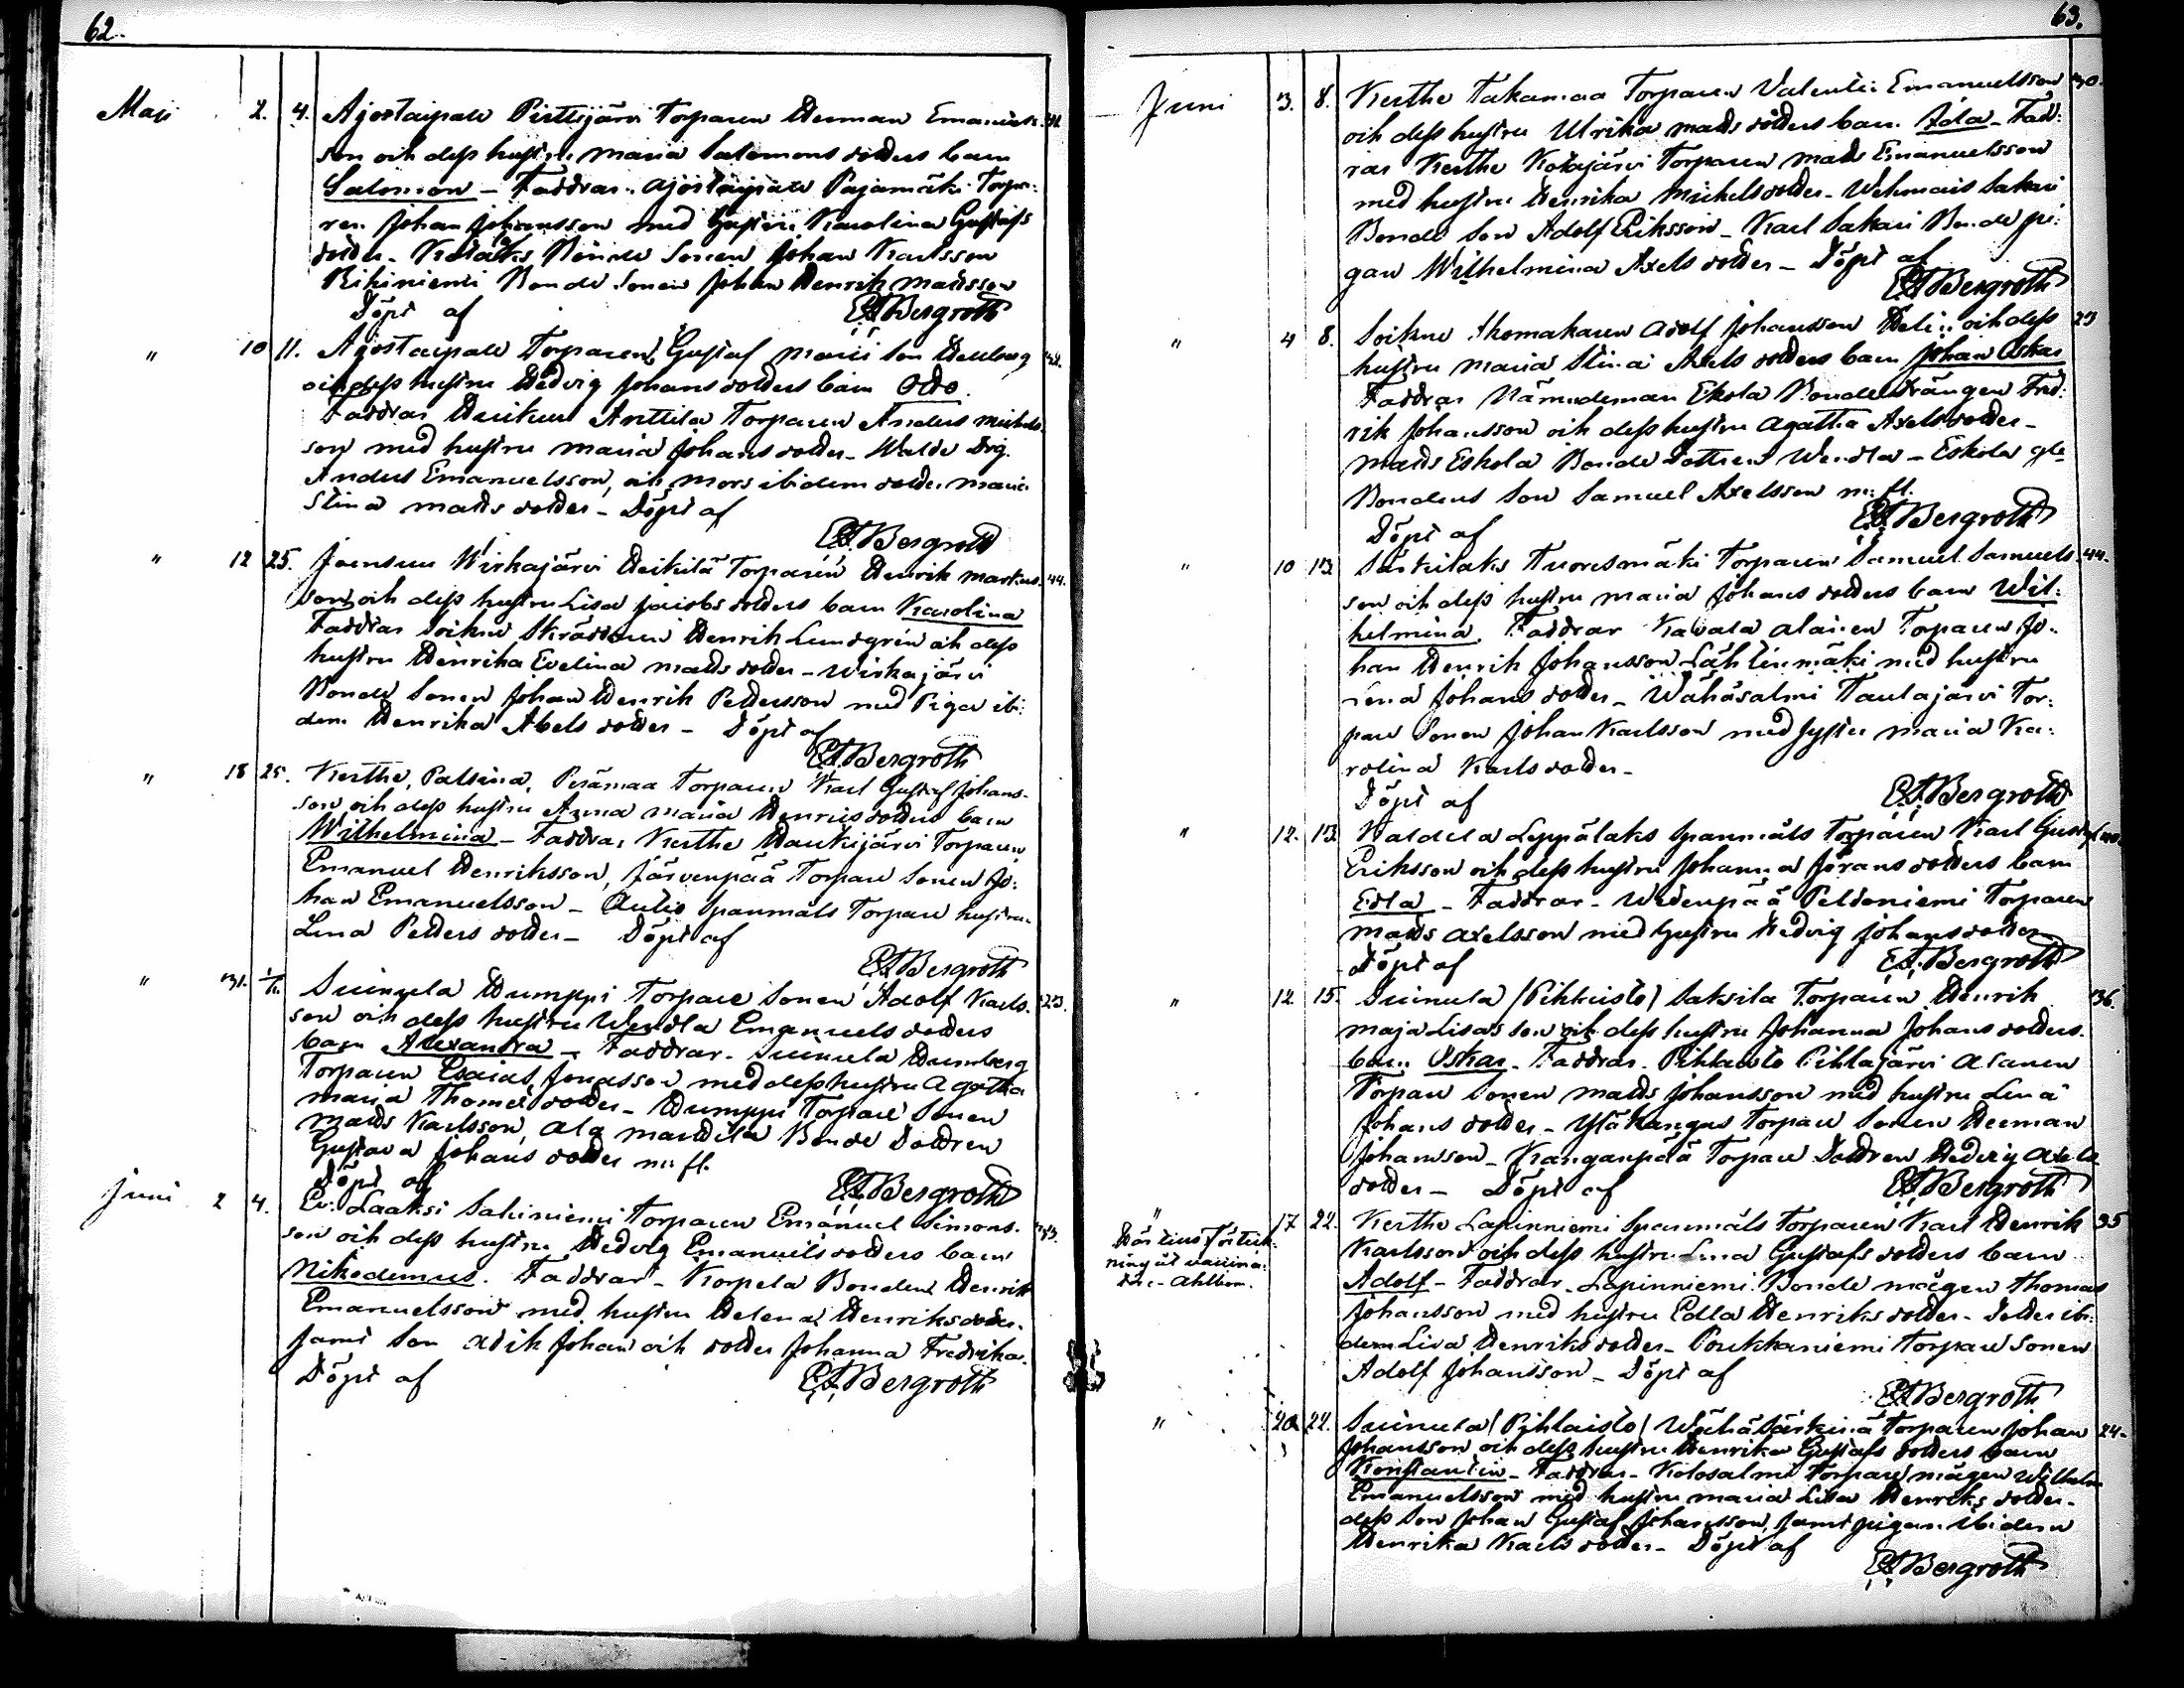 62.
Maji 2. 4. Ajostaipale Pirttijärvi Torparen Herman Emanuels-
son och dess hustru Maria Salomons dotters barn
Salomon - Faddrar. Ajostaipale Pajamäki Torpa-
ren Johan Johansson med hustru Karolina Gustafs
dotter - Bonde Sonen Johan Karlsson
Bonde Sonen Johan Henrik Mattsson
Döpt af E.A. Bergroth
" 10 11. Ajostaipale Torparen Gustaf Marii son Hellberg
och dess hustru Hedvig Johans dotters barn Otto.
Faddrar Anttila Torparen Anders Michels-
son med hustru Maria Johans dotter - Drg.
Anders Emanuelsson, och Mors ibidem dotter Maria
Stina Matts dotter - Döpt af
E.A. Bergroth
" 12 25. Joensuu Wirkajärvi Heikilä Torparen Henrik Markus- 44.
son och dess hustru Lisa Jacobs dotters barn Karolina
Faddrar Soikur Skräddaren Henrik Lundgrén och dess
hustru Henrika Evelina Matts dotter - Wirkajärvi
Bonde Sonen Johan Henrik Pettersson med Piga ibi-
dem Henrika Abels dotter - Döpt af
E.A. Bergroth
" 18 25. Kerthe, Palsina, Perämaa Torparen Karl Gustaf Johans-
son och dess hustru Anna Maria Henriks dotters barn
Wilhelmina - Faddrar Kerthe Haukijärvi Torparen
Emanuel Henriksson, Järvenpää Torpare Sonen Jo-
han Emanuelsson - Aulio Spanmåls Torpare hustrun
Lena Petters dotter - Döpt af
E.A. Bergroth
" 31. Suinula Humppi Torpare Sonen Adolf Karls- 23.
son och dess hustru Wendla Emanuels dotters
barn Alexandra - Faddrar - Suinula Humberg
Torparen Esaias Jonasson med dess hustru Agatha
Maria Thomas dotter - Humppi Torpare Sonen
Matts Karlsson, Ala Marttila Bonde Dottren
Gustava Johans dotter m: fl.
Döpt af E.A. Bergroth
Juni 2 4. Laaksi Sahiniemi Torparen Emanuel Simons-
son och dess hustru Hedvig Emanuels dotters barn
Nikodemus. Faddrar - Korpela Bonden Henrik
Emanuelsson med hustru Helena Henriks dotter.
Samt Son Johan och dotter Johanna Fredrika.
Döpt af E.A. Bergroth
63.
Juni 3. 8. Kerthe Takamaa Torparen Valentin Emanuelsson 30.
och dess hustru Ulrika Matts dotters barn Ida - Fad-
rar Kerthe Kotajärvi Torparen Matts Emanuelsson
med hustru Henrika Michels dotter - Wehmais Sakari
Bonde Son Adolf Eriksson - Karl Sakari Bonde pi-
gan Wilhelmina Axels dotter - Döpt af
E.A. Bergroth
" 4 8. Soikur Skomakaren Adolf Johansson Helin och dess 23
hustru Maria Stina Axels dotters barn Johan Oskar
Faddrar Nämndeman Ekola Bonde drängen Fred-
rik Johansson och dess hustru Agatha Axels dotter -
Matts Eskola Bonde Dottren Wendla - Eskola gle
Bondens Son Samuel Axelsson m: fl.
Döpt af E.A. Bergroth
" 10 13 Särkilaks Tuoresmäki Torparen Samuel Samuels- 44.
son och dess hustru Maria Johans dotters barn Wil-
helmina. Faddrar Kavala Alanen Torparen Jo-
han Henrik Johansson Lähteinmäki med hustru
Lena Johans dotter - Wähäsalmi Taulajärvi Tor-
pare Sonen Johan Karlsson med syster Maria Ka-
rolina Karls dotter -
Döpt af E.A. Bergroth
" 12. 13. Leppälaks Spanmåls Torparen Karl Gustaf
Eriksson och dess hustru Johanna Jörans dotters barn
Edla - Faddrar - Wedenpää Peldoniemi Torparen
Matts Axelsson med hustru Hedvig Johans dotter
Döpt af E.A. Bergroth
" 12 15. Suinula (Pihlaisto) Saksila Torparen Henrik 36.
Maja Lisas son och dess hustru Johanna Johans dotters
barn Oskar - Faddrar - Pihlaisto Pihlajärvi Asanen
Torpare Sonen Matts Johansson med hustru Lena
Johans dotter - Ylä Kangas Torpare Sonen Herman
Johansson - Kanganpää Torpare Dottren Hedvig Axels
dotter - Döpt af E.A. Bergroth
" 17 22. Kerthe Lapinniemi Spanmåls Torparen Karl Henrik 35
Karlsson och dess hustru Lena Gustafs dotters barn
Adolf - Faddrar - Lapinniemi Bonde mågen Thomas
Johansson med hustru Edla Henriks dotter - Dotter ibi-
dem Lisa Henriks dotter - Poukkaniemi Torpare Sonen
Adolf Johansson - Döpt af
E.A. Bergroth
förteck-
ning
Ahlbom.
" 20 22. Suinula (Pihlaisto) Torparen Johan 24.
Johansson och dess hustru Henrika Gustafs dotters barn
Konstantin - Faddrar - Kolosalmi Torpare mågen Wilhelm
Emanuelsson med hustru Maria Lisa Henriks dotter -
dess Son Johan Gustaf Johansson, samt pigan ibidem
Henrika Karls dotter - Döpt af
E.A. Bergroth